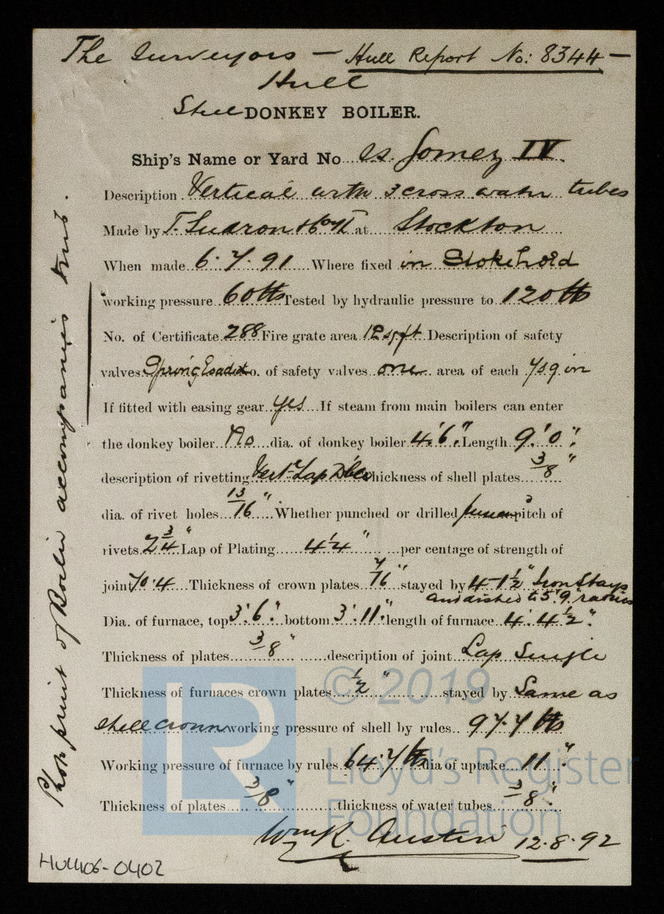 The Surveyors — Hull Report No: 8344 —
Hull
Steel DONKEY BOILER.
Ship's Name or Yard No. ss. Gomez IV.
Description Vertical with 3 cross water tubes
Made by T. Sudron & Co Ld at Stockton
When made 6.7.91 Where fixed in Stokehold
working pressure 60 lbs Tested by hydraulic pressure to 120 lbs
No. of Certificate 288 Fire grate area 12 sq ft Description of safety
valves Spring Loaded No. of safety valves one area of each 7 sq in
If fitted with easing gear yes If steam from main boilers can enter
the donkey boiler No dia. of donkey boiler 4'.6" Length 9'.0".
description of rivetting Vert. Lap Dble thickness of shell plates 3/8"
dia. of rivet holes 13/16" Whether punched or drilled pitch of
rivets 2 3/4" Lap of Plating 4 1/4" per centage of strength of
joint 70.4 Thickness of crown plates 7/16" stayed by 4-1 1/2" Iron Stays
and dished to 5'.9 radius
Dia. of furnace, top 3'.6". bottom 3'.11". length of furnace 4'. 4 1/2".
Thickness of plates 3/8" description of joint Lap Single
Thickness of furnaces crown plates 1/2" stayed by Same as
shell crown working pressure of shell by rules 97.7 lbs
Working pressure of furnace by rules 64.7 lbs dia of uptake 11".
Thickness of plates 3/8" thickness of water tubes 3/8".
Wm R. Austin 12.8.92
Photo print of Boiler accompanies this.
HUL406-0402
© 2019
Lloyd's Register
Foundation
LR